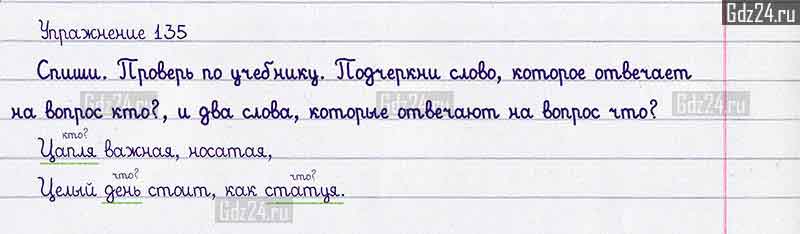 Gdz24.ru
Упражнение 135
Спиши. Проверь по учебнику. Подчеркни слово, которое отвечает
Gdz24.ru Gdz24.ru
на вопрос кто?, и два слова, которые отвечают на вопрос что?
кто?
Цапля важная, носатая,
что? что?
Целый день стоит, как статуя.
Gdz24.ru